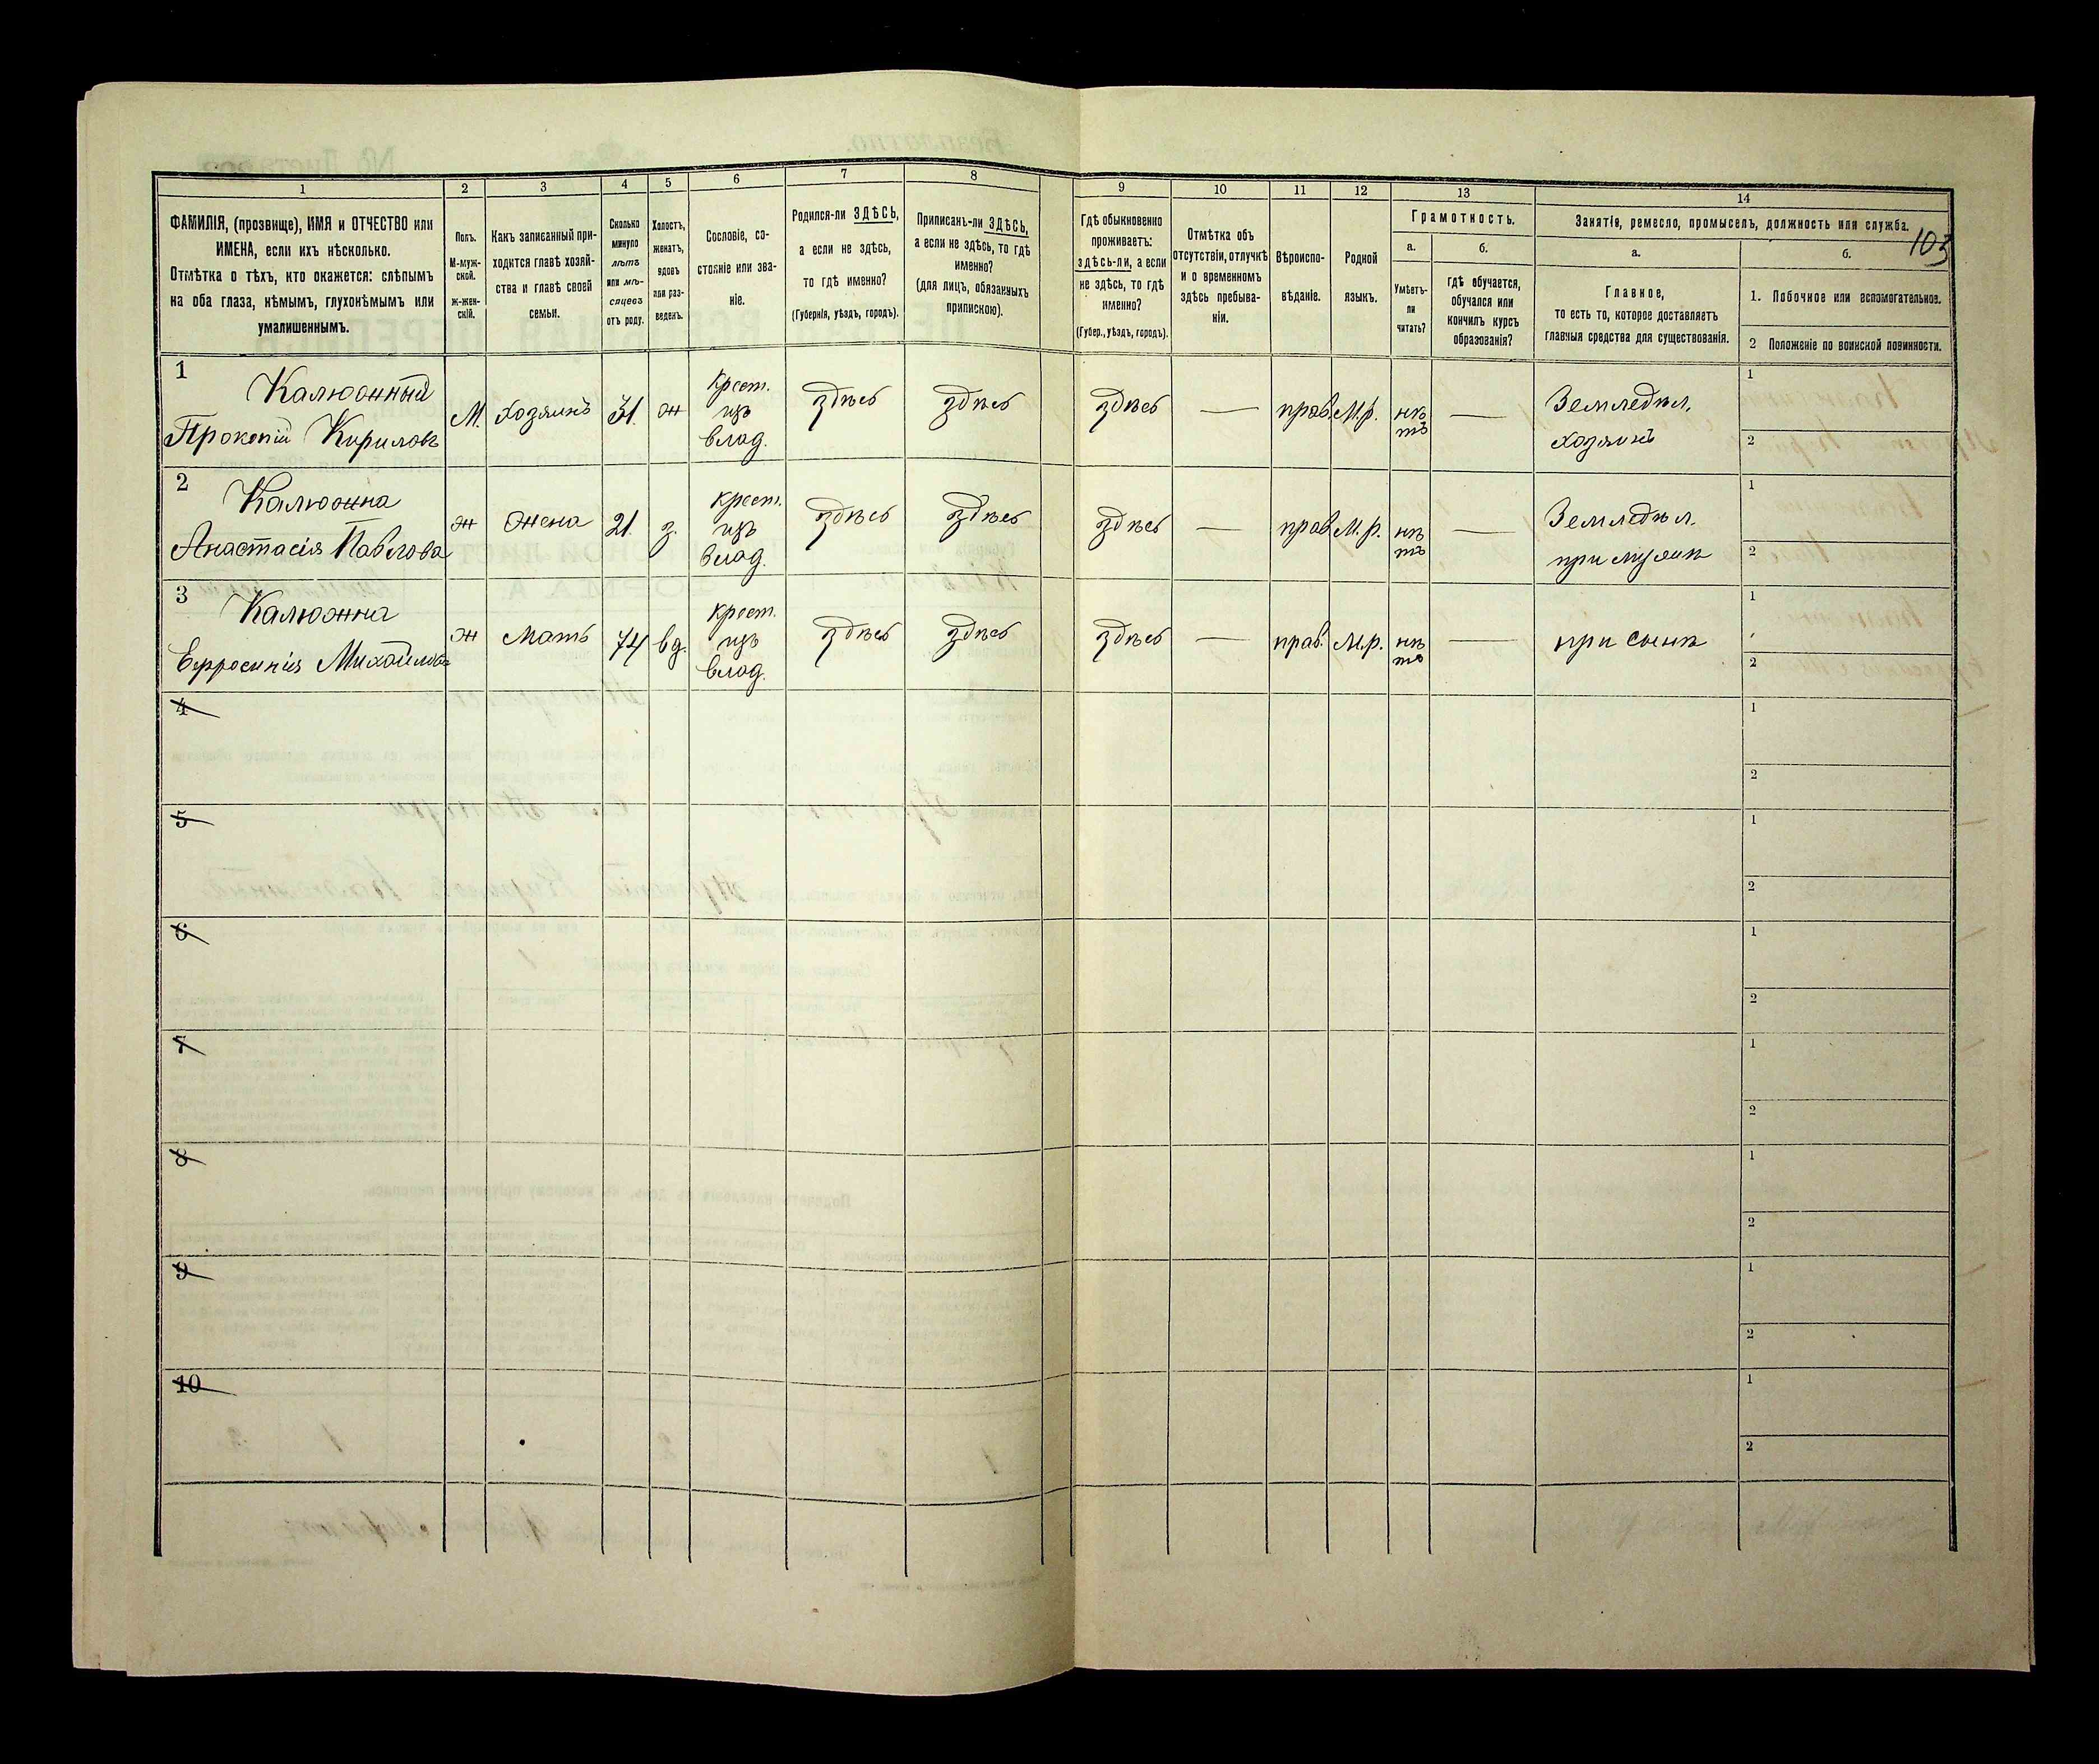 103
1 2 3 4 5 6 7 8 9 10 11 12 13 14
ФАМИЛІЯ, (прозвище), ИМЯ и ОТЧЕСТВО или
ИМЕНА, если ихъ нѣсколько.
Отмѣтка о тѣхъ, кто окажется: слѣпымъ
на оба глаза, нѣмымъ, глухонѣмымъ или
умалишеннымъ.
Полъ.
М-муж-
ской.
ж-жен-
скій.
Какъ записанный при-
ходится главѣ хозяй-
ства и главѣ своей
семьи.
Сколько
минуло
лѣтъ
или мѣ-
сяцевъ
отъ роду.
Холостъ,
женатъ,
вдовъ
или раз-
веденъ.
Сословіе, со-
стояніе или зва-
ніе.
Родился-ли ЗДѢСЬ,
а если не здѣсь,
то гдѣ именно?
(Губернія, уѣздъ, городъ).
Приписанъ-ли ЗДѢСЬ,
а если не здѣсь, то гдѣ
именно?
(для лицъ, обязанныхъ
припискою).
Гдѣ обыкновенно
проживаетъ:
здѣсь-ли, а если
не здѣсь, то гдѣ
именно?
(Губер., уѣздъ, городъ).
Отмѣтка объ
отсутствіи, отлучкѣ
и о временномъ
здѣсь пребыва-
ніи.
Вѣроиспо-
вѣданіе.
Родной
языкъ.
Грамотность.
а.
Умѣетъ-
ли
читать?
б.
гдѣ обучается,
обучался или
кончилъ курсъ
образованія?
Занятія, ремесло, промыселъ, должность или служба.
а.
Главное,
то есть то, которое доставляетъ
главныя средства для существованія.
б.
1. Побочное или вспомогательное.
2 Положеніе по воинской повинности.
1
Калюжный
Прокопій Кирилов
М.
хозяинъ
31.
ж
крест.
изъ
влад.
здѣсь
здѣсь
здѣсь
—
прав.
М.р.
нѣ
тъ
—
Земледѣл.
хозяинъ
1
2
2
Калюжна
Анастасія Павлова
ж
жена
21.
з.
крест.
изъ
влад.
здѣсь
здѣсь
здѣсь
—
прав.
М.р.
нѣ
тъ
—
Земледѣл.
при мужѣ
1
2
3
Калюжна
Ефросинія Михайлова
ж
мать
74
вд.
крест.
изъ
влад.
здѣсь
здѣсь
здѣсь
—
прав.
М.р.
нѣ
тъ
—
при сынѣ
1
2
4
1
2
5
1
2
6
1
2
7
1
2
8
1
2
9
1
2
10
1
2